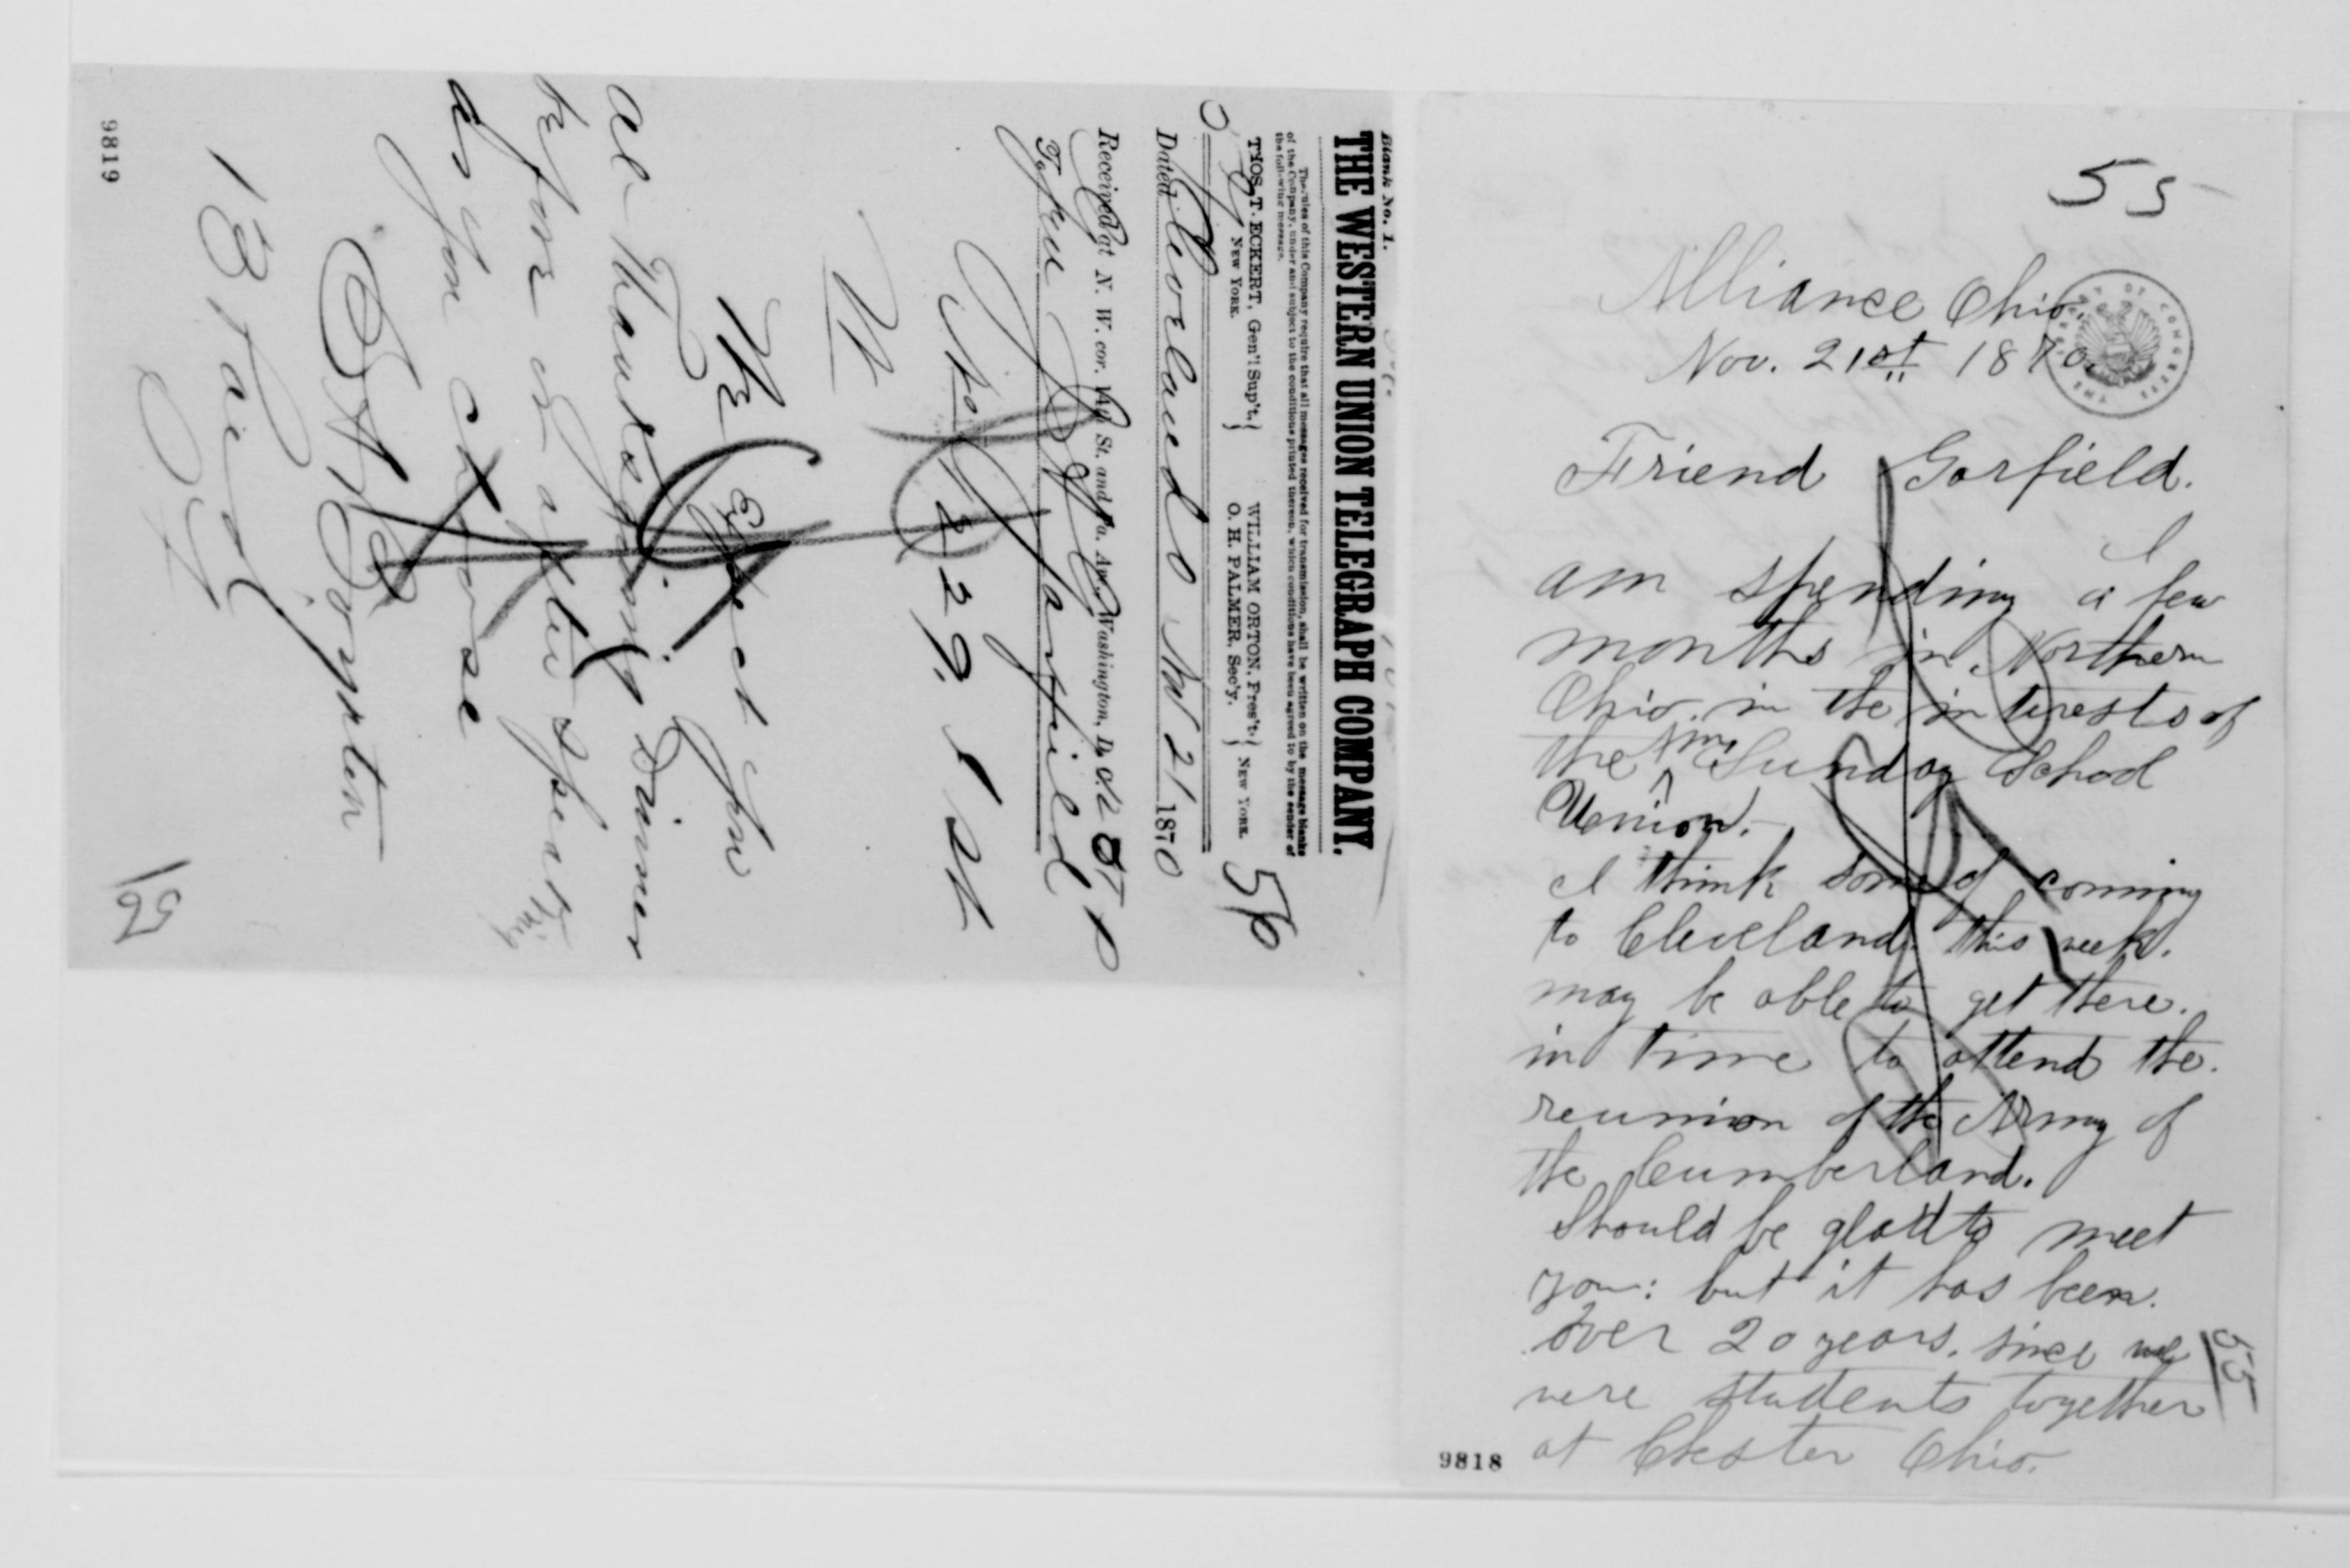 Blank No. 1.
THE WESTERN UNION TELEGRAPH COMPANY.
The rules of this Company require that all messages received for transmission, shall be written on the message blanks
of the Company, under and subject to the conditions printed thereon, which conditions have been agreed to by the sender of
the following message.
THOS. T. ECKERT, Gen'l Sup't, } WILLIAM ORTON, Pres't, }
NEW YORK. O. H. PALMER, Sec'y, } NEW YORK.
56
Dated Cleveland O Nov 21 1870
Received at N. W. cor. 14th St. and Pa. Av., Washington, D. C.
To Genl J A Garfield
No 1229 I St
We Expect you
at Thanksgiving Dinner
before or after speaking
as you choose
13 Paid
56
9819
55
Alliance Ohio.
Nov. 21st 1870.
Friend Garfield.
I
am spending a few
months in Northern
Ohio. in the interests of
the Am Sunday School
Union.
I think some of coming
to Cleveland this week.
may be able to get there.
in time to attend the.
reunion of the Army of
the Cumberland.
Should be glad to meet
you: but it has been.
over 20 years. since we
were students together
at Chester Ohio.
55
9818